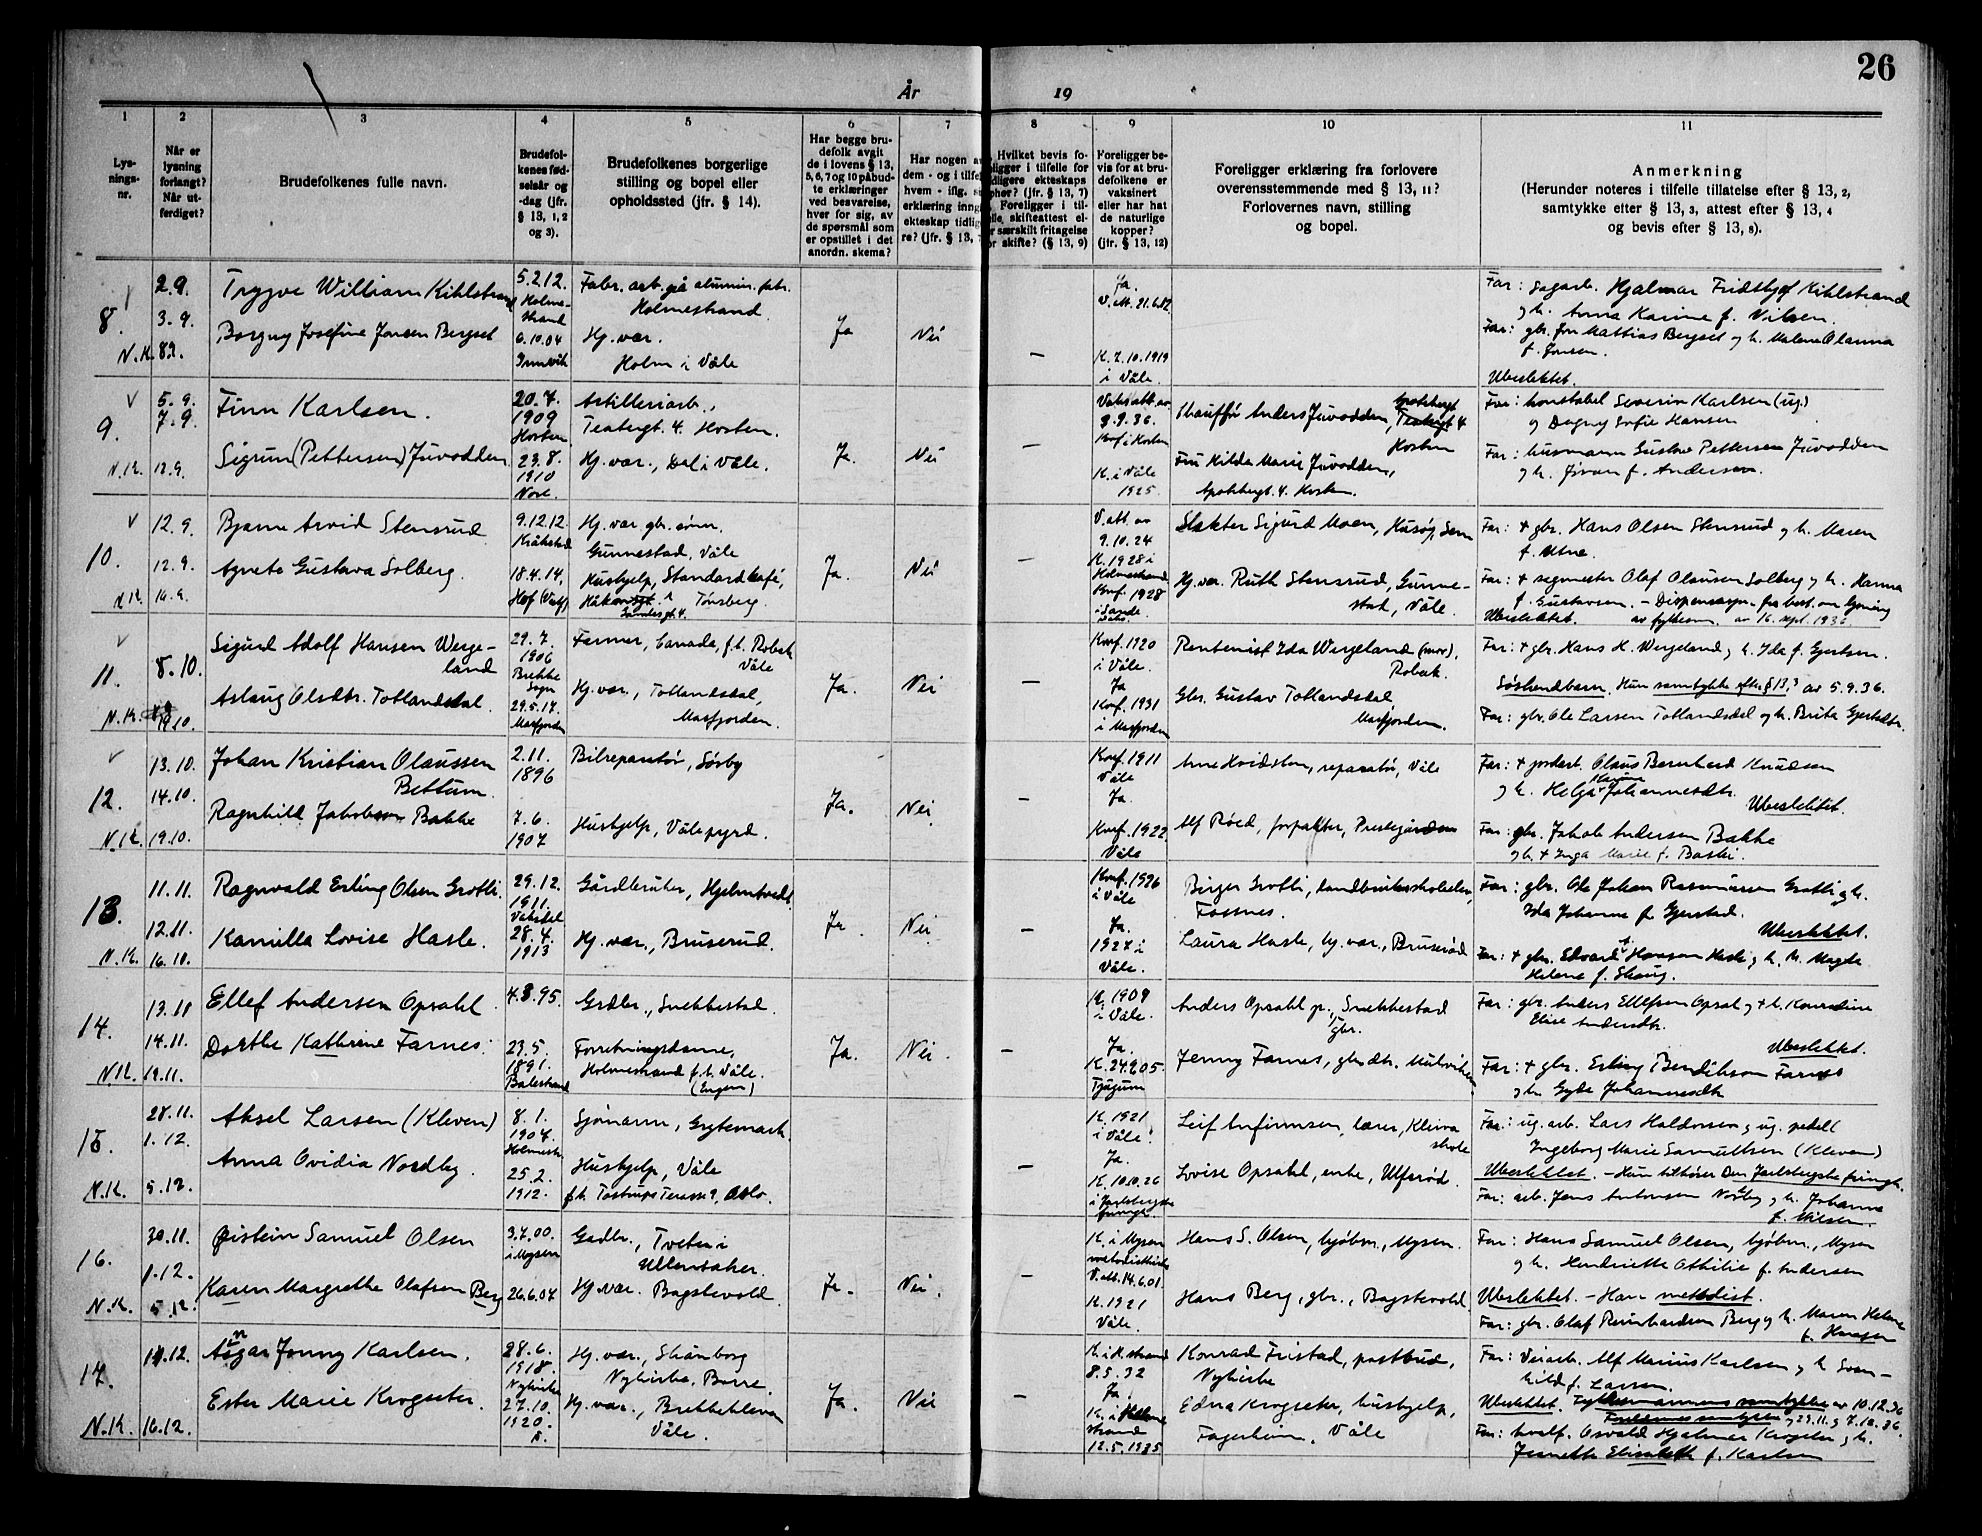 26
År 19
1 2 3 4 5 6 7 8 9 10 11
Lys-
nings-
nr.
Når er
lysning
forlangt?
Når ut-
ferdiget?
Brudefolkenes fulle navn.
Brudefol-
kenes fød-
selsår og
-dag (jfr.
§ 13, 1, 2
og 3).
Brudefolkenes borgerlige
stilling og bopel eller
opholdssted (jfr. § 14).
Har begge bru-
defolk avgit
de i lovens § 13,
5, 6, 7 og 10 påbud-
te erklæringer
ved besvarelse,
hver for sig, av
de spørsmål som
er opstillet i det
anordn. skema?
Har nogen av
dem - og i tilfel
hvem - iflg. s
erklæring inng
ekteskap tidlig
re? (jfr. § 13, 7
Hvilket bevis fo-
ligger i tilfelle for
dligere ekteskaps
phør? (jfr. § 13, 7)
Foreligger i til-
elle, skifteattest el-
r særskilt fritagelse
or skifte? (§ 13, 9)
Foreligger be-
vis for at bru-
defolkene er
vaksinert
eller har hat
de naturlige
kopper?
(jfr. § 13, 12)
Foreligger erklæring fra forlovere
overensstemmende med § 13, 11?
Forlovernes navn, stilling
og bopel.
Anmerkning
(Herunder noteres i tilfelle tillatelse efter § 13, 2,
samtykke efter § 13, 3, attest efter § 13, 4
og bevis efter § 13, 8).
8.
N.K.
2.9.
3.9.
Trygve William Kihlstrand
Borgny Josefine Jonsen Bergset
5.2.12.
Holme-
strand
6.10.04
Innvik
Fabr. arb. på alumin. fabr.
Holmestrand.
Hj. vær.
Holm i Våle
Ja
Nei
—
Ja.
K. 7.10.1919
i Våle.
Far: Sagarb. Hjalmar Fridthjof Kihlstrand
og h. Anna Karine f. Nilsen.
Far: gbr. Jon Mattias Bergset og h. Malene Olanna
f. Jonsen.
Ubeslektet.
9.
N.K.
5.9.
7.9.
12.9.
Finn Karlsen.
Sigrun (Pettersen) Juvodden
20.7.
1909
Horten
23.8.
1910
Artilleriarb.,
Teatergt. 4. Horten.
Hj. vær., Dal i Våle.
Ja.
Nei
—
9.9.36.
K. i Våle
1925.
Chauffør Anders Juvodden, Teatergt 4
Horten
Fru Hilda Marie Juvodden,
Apotekergt. 4. Horten.
Far: konstabel Severin Karlsen (ug.)
og Dagny Sofie Hansen
Far: husmann Gustav Pettersen Juvodden
og h. f. Andersen.
10.
N.K.
12.9.
12.9.
16.9.
Bjarne Arvid Stensrud
Agnete Gustava Solberg.
9.12.12.
Kråkstad
18.4.14,
Hof (Vestf)
Hj. vær. gbr. sønn.
Gunnestad, Våle
Hushjelp, Standardkafé,
Tønsberg.
Ja.
Nei
—
V. att. av
9.10.24
K. 1928 i
Holmestrand
Konf. 1928
i Sande
Slakter Sigurd Moen, Husøy, Sem
Hj. vær. Ruth Stensrud, Gunne-
stad, Våle.
Far: + gbr. Hans Olsen Stensrud og h. Maren
f. Utne.
Far: + sagmester Olaf Olausen Solberg og h. Hanna
f. Gustavsen. – Dispensasjon fra best. om lysning
Ubeslektet. av fylkesm. av 16. sept. 1936
11.
N.K.
8.10.
19.10.
Sigurd Adolf Hansen Werge-
land
Aslaug Olsdtr. Totlandsdal.
29.7.
1906
Brekke
Sogn
29.5.17.
Masfjorden
Farmer, Canada, f.t. Robak
Våle
Hj. vær., Totlandsdal,
Masfjorden.
Ja.
Nei
—
Konf. 1920
i Våle.
Ja
Konf. 1931
i Masfjorden
Rentenist Ida Wergeland (mor),
Robak.
Gbr. Gustav Totlandsdal
Masfjorden.
Far: + gbr. Hans H. Wergeland og h. Ida f. Gjertsen.
Søskendbarn. Hun samtykke efter § 13,3 av 5.9.36.
Far: gbr. Ole Larsen Totlandsdal og h. Brita Gjertsdtr.
12.
N.K.
13.10.
14.10.
19.10.
Johan Kristian Olaussen
Bettum.
Ragnhild Jakobsen Bakke
2.11.
1896
7.6.
1907
Bilreparatør, Sørby
Hushjelp, Våle pgrd.
Ja.
Nei
—
Konf. 1911
Våle
Ja.
Konf. 1922
Våle
Arne Hvidsten, reparatør, Våle
Alf Røed, forpakter, Prestegården
Far: + jordarb. Olaus Bernhard Knudsen
og h. Helga Karine Johannesdtr.
Ubeslektet.
Far: gbr. Jakob Andersen Bakke
og h. + Inga Marie f. Bakke.
13.
N.K.
11.11.
12.11.
16.10.
Ragnvald Erling Olsen Grotli.
Kamilla Lovise Hasle.
29.12.
1911.
28.4.
1913
Gårdbruker, Hjelmtvedt.
Hj. vær., Bruserud.
Ja.
Nei.
—
Konf. 1926
i Våle
Ja.
1927 i
Våle.
Birger Grotli, landbruksskoleelev,
Fossnes.
Laura Hasle, hj. vær., Bruserød
Far: gbr. Ole Johan Rasmussen Grotli og h.
Ida Johanne f. Gjerstad.
Ubeslektet.
Far: + gbr. Edvard Hansen Hasle og h. M. Magda
Helene f. Skaug.
14.
N.K.
13.11
14.11.
19.11.
Ellef Andersen Opsahl.
Dorthe Kathrine Farnes.
4.3.95.
23.5.
1891.
Balestrand
Grdbr., Snekkestad.
Forretningsdame,
Holmestrand f.t. Våle.
(Engen)
Ja.
Nei
—
K. 1909
i Våle.
Ja.
K. 24.9.05
Tjugum
Anders Opsahl jr., Snekkestad
gbr.
Jenny Farnes, gbr.dtr. Mulvika
Far: gbr. Anders Ellefsen Opsal og + h. Konradine
Elise Andersdtr.
Ubeslektet.
Far: + gbr. Erling Bendiksen Farnes
og h. Gyda Johannesdtr
15.
N.K.
28.11.
1.12.
5.12.
Aksel Larsen (Kleven)
Anna Ovidia Nordby.
8.1.
1907.
Holmestr.
25.2.
1912.
Sjømann, Grytemark.
Hushjelp, Våle
f.t. Tostrups Terasse 9, Oslo.
—
K. 1921
i Våle.
Ja.
K. 10.10.26
i Jarlsbergske
frimgh.
Leif Anfinnsen, lærer, Kleiva
skole
Lovise Opsahl, enke, Ulfsrød.
Far: ug. arb. Lars Haldorsen og ug.
Ingeborg Marie Samuelsen (Kleven)
Ubeslektet. – Hun tilhører Den Jarlsbergske frimgh.
Far: arb. Jens Antonsen Nordby og h. Johanna
f. Nilsen.
16.
N.K.
30.11.
1.12.
5.12.
Øistein Samuel Olsen
Karen Margrethe Olafsen Berg
3.7.00.
i Mysen
26.6.07
Grdbr., Tveten i
Ullensaker.
Hj. vær. Bagstevold.
Ja.
Nei.
—
K. i Mysen
metodistkirke
V. att. 14.6.01.
K. 1921
Våle.
Hans S. Olsen, kjøbm., Mysen.
Hans Berg, gbr., Bagstevold
Far: Hans Samuel Olsen, kjøbm., Mysen
og h. Henriette Othilie f. Andersen
Ubeslektet. – Han metodist.
Far: gbr. Olaf Reinhardsen Berg og h. Maren Helene
f. Hansen
17.
N.K.
14.12.
16.12.
Ansgar Jonny Karlsen.
Ester Marie Krogseter.
28.6.
1918.
Nykirke
27.10.
1920.
Hj. vær., Skånborg
Nykirke, Borre.
Hj. vær., Brekkekleva
Våle.
Ja.
Nei
—
8.5.32
Ja.
K. i Holme
strand
12.5.1935
Konrad Fristad, postbud,
Nykirke
Edna Krogseter, hushjelp,
Fagerheim, Våle
Far: Veiarb. Alf Marius Karlsen og h. Svan-
hild f. Larsen.
Ubeslektet. Fylkesmannens samtykke av 10.12.36
Foreldrenes samtykke 29.11. og 7.12.36.
Far: hvalf. Osvald Hjalmar Krogseter og h.
Jeanette Elisabeth f. Karlsen